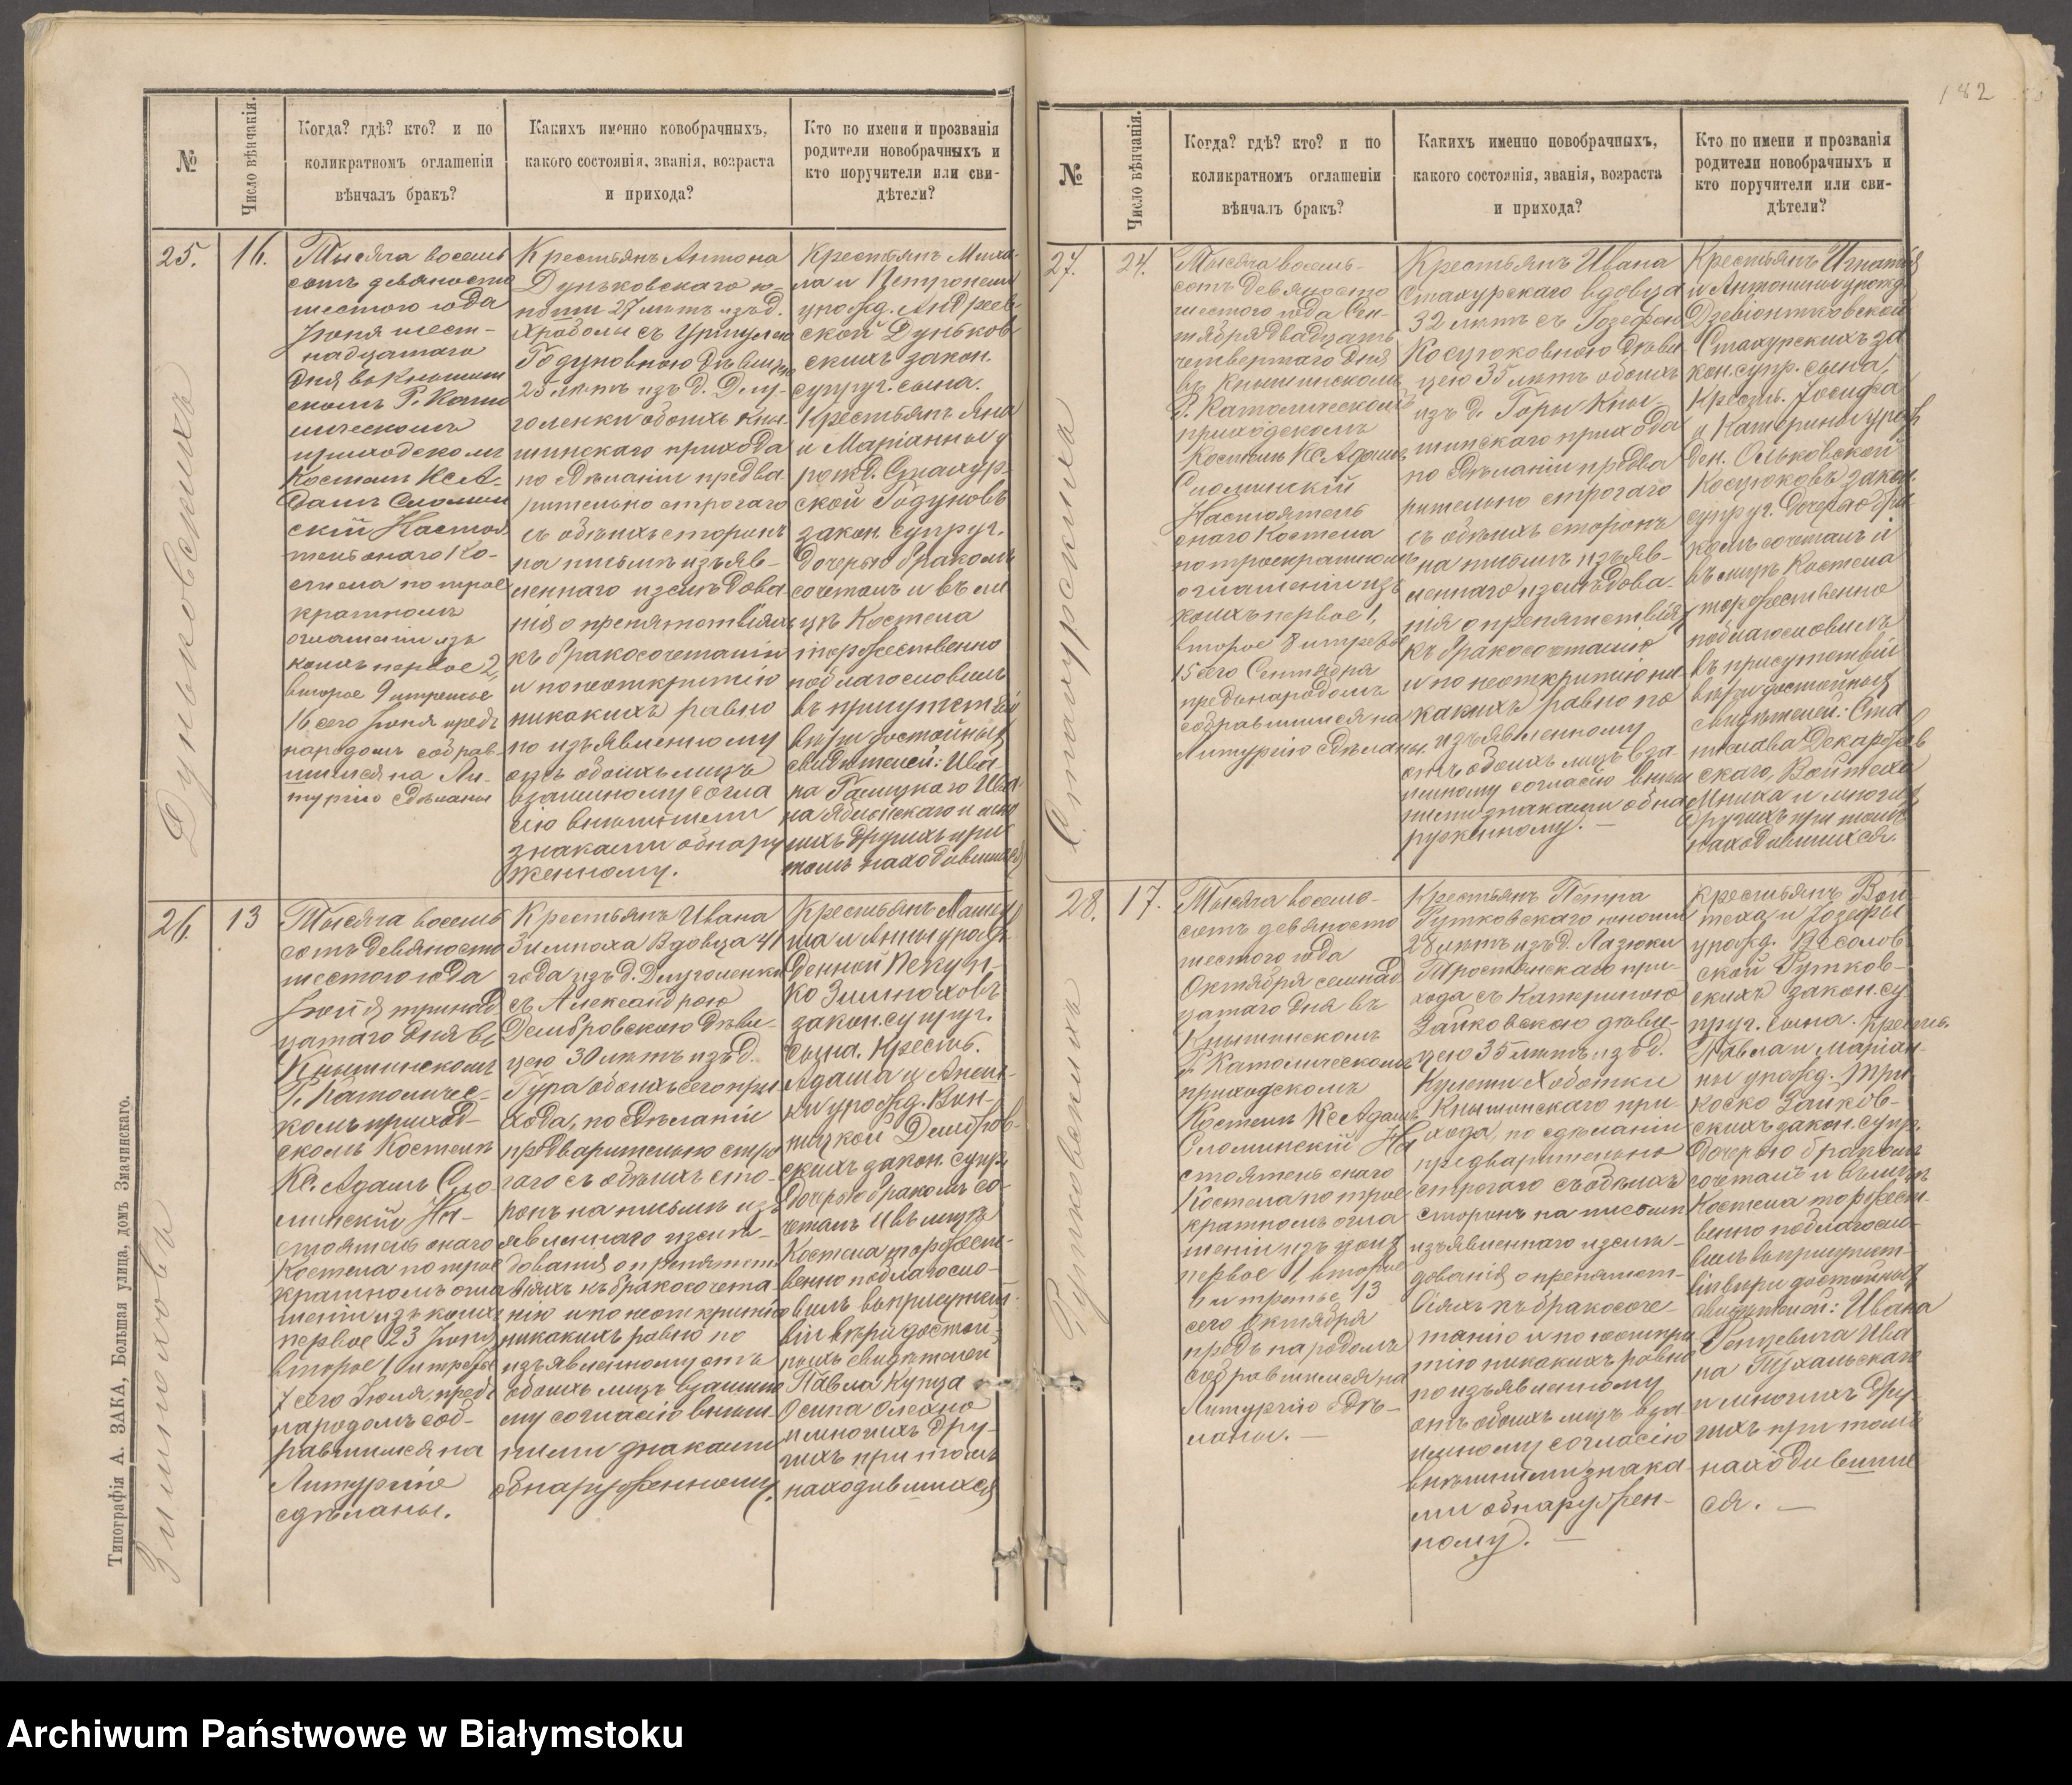 182
№
Число вѣнчанія.
Когда? гдѣ? кто? и по
коликратномъ оглашеніи
вѣнчалъ бракъ?
Какихъ именно новобрачныхъ,
какого состоянія, званія, возраста
и прихода?
Кто по имени и прозванія
родители новобрачныхъ и
кто поручители или сви-
дѣтели?
25.
16.
Тысяча восемь
сотъ девяносто
шестого года
Іюня шест-
надцатаго
дня въ Кнышин
скомъ Р. Като
лическомъ
приходскомъ
Костелѣ Кс А-
дамъ Сломин
скій Настоя
тель онаго Ко-
стела по трое
кратномъ
оглашеніи изъ
коихъ первое 2,
второе 9 и третье
16 сего Іюня предъ
народомъ собрав
шимся на Ли-
тургію сдѣланы
Крестьянъ Антона
Дуньковскаго ю-
ношу 27 лѣтъ изъ д.
съ Уршулею
Годуновною дѣвицею
25 лѣтъ изъ д. Длу-
голенки обоихъ Кны-
шинскаго прихода
по сдѣланіи предва
рительно строгаго
съ обѣихъ сторонъ
на письмѣ изъяв-
леннаго изслѣдова
нія о препятствіяхъ
къ бракосочетанію
и по неоткрытію
никакихъ равно
по изъявленному
отъ обоихъ лицъ
взаимному согла
сію внѣшними
знаками обнару
женному.
Крестьянъ Миха
ла и Петронели
урожд. Андреев
ской Дуньков
скихъ закон.
супруг. сына.
Крестьянъ Яна
и Маріанны у
рожд. Стахур-
ской Годуновъ
закон. супруг.
дочерью бракомъ
сочеталъ и въ ли
цѣ Костела
торжественно
поблагословилъ
въ присутствіи
вѣри достойныхъ
свидѣтелей: Ива
на Галицкаго Ива
на Яблонскаго и мно
гихъ другихъ при
томъ находившихся
Дуньковскихъ
26.
13
Тысяча восемь
сотъ девяносто
шестого года
Іюля тринад
цатаго дня въ
Кнышинскомъ
Р. Католичес-
комъ приход-
скомъ Костелѣ
Кс. Адамъ Сло-
минскій На-
стоятель онаго
Костела по трое
кратномъ огла
шеніи изъ коихъ
первое 23 Іюня
второе 1 и третье
7 сего Іюля, предъ
народомъ соб-
равшимся на
Литургію
сдѣланы.
Крестьянъ Ивана
Зимноха вдовца 41
года изъ д. Длуголенки
съ Александрою
Домбровскою дѣви-
цею 30 лѣтъ изъ д.
Гура обоихъ сего при
хода, по сдѣланіи
предварительно стро
гаго съ обѣихъ сто-
ронъ на письмѣ изъ
явленнаго изслѣ-
дованія о препятст
віяхъ къ бракосочета-
нію и по неоткрытію
никакихъ равно по
изъявленному отъ
обоихъ лицъ взаимно
му согласію внѣш-
ними знаками
обнаруженному.
Крестьянъ Матеу
ша и Анны урож
денной Пекун-
ко Зимноховъ
закон. супруг.
сына. Крестьян.
Адама и Анели-
ни урожд. Вин-
ницкой Домбров-
скихъ закон. супр.
дочерью бракомъ со-
четалъ и въ лицѣ
Костела торжест-
венно поблагосло-
вилъ въ присутст
віи вѣри достой-
ныхъ свидѣтелей
Павла Купца
Осипа Олехно
и многихъ дру-
гихъ при томъ
находившихся
Зимнохова
Типографія А. ЗАКА, Большая улица, домъ Змачинскаго.
№
Число вѣнчанія.
Когда? гдѣ? кто? и по
коликратномъ оглашеніи
вѣнчалъ бракъ?
Какихъ именно новобрачныхъ,
какого состоянія, званія, возраста
и прихода?
Кто по имени и прозванія
родители новобрачныхъ и
кто поручители или сви-
дѣтели?
27.
24.
Тысяча восемь-
сотъ девяносто
шестого года Сен-
тября двадцать
четвертаго дня
въ Кнышинскомъ
Р. Католическомъ
приходскомъ
Костелѣ Кс Адамъ
Сломинскій
Настоятель
онаго Костела
по троекратномъ
оглашеніи изъ
коихъ первое 1,
второе 8 и третье
15 сего Сентября
предъ народомъ
собравшимся на
Литургію сдѣланы.
Крестьянъ Ивана
Стахурскаго вдовца
32 лѣтъ съ Іозефою
Косуюковною дѣви
цею 35 лѣтъ обоихъ
изъ д. Горы Кны-
шинскаго прихода
по сдѣланіи предва
рительно строгаго
съ обѣихъ сторонъ
на письмѣ изъяв-
леннаго изслѣдова-
нія о препятствіяхъ
къ бракосочетанію
и по неоткрытію ни
какихъ равно по
изъявленному
отъ обоихъ лицъ вза
имному согласію внѣш
ними знаками обна
руженному. —
Крестьянъ Игнатія
и Антонины урожд.
Дзевіонтковской
Стахурскихъ за
кон. супр. сына,
Крестьян. Іосифа
и Катерины урож
ден. Ольковской
Косуюковъ закон.
супруг. дочерью бра
комъ сочеталъ и
въ лицѣ Костела
торжественно
поблагословилъ
въ присутствіи
вѣри достойныхъ
свидѣтелей: Ста
нислава Декаржев
скаго, Войтеха
Мниха и многихъ
другихъ при томъ
находившихся.
Стахурскиха
28.
17.
Тысяча восемь-
сотъ девяносто
шестого года
Октября семнад
цатаго дня въ
Кнышинскомъ
Р Католическомъ
приходскомъ
Костелѣ Кс Адамъ
Сломинскій На
стоятель онаго
Костела по трое
кратномъ огла
шеніи изъ коихъ
первое 1, второе
6 и третье 13
сего Октября
предъ народомъ
собравшимся на
Литургію сдѣ-
ланы. —
Крестьянъ Петра
Рутковскаго юношу
28 лѣтъ изъ д. Лазюки
Тростянскаго при-
хода съ Катериною
Зайковскою дѣви-
цею 35 лѣтъ изъ д.
Кулеши Хоботки
Кнышинскаго при-
хода, по сдѣланіи
предварительно
строгаго съ обѣихъ
сторонъ на письмѣ
изъявленнаго изслѣ-
дованія о препятст-
віяхъ къ бракосоче-
танію и по неоткры
тію никакихъ равно
по изъявленному
отъ обоихъ лицъ вза
имному согласію
внѣшними знака
ми обнаружен-
ному. —
Крестьянъ Вой
теха и Іозефы
урожд. Весолов
ской Рутков-
скихъ закон. су
пруг. сына. Крестьн.
Павла и Маріан-
ны урожд. Три-
коско Зайков-
скихъ закон. супр.
дочерью бракомъ
сочеталъ и въ лицѣ
Костела торжест-
венно поблагосло-
вилъ въ присутст-
віи вѣри достойныхъ
свидѣтелей: Ивана
Сенцевича Ива
на Тухальскаго
и многихъ дру
гихъ при томъ
находивших
ся. —
Рутковскихъ
Archiwum Państwowe w Białymstoku